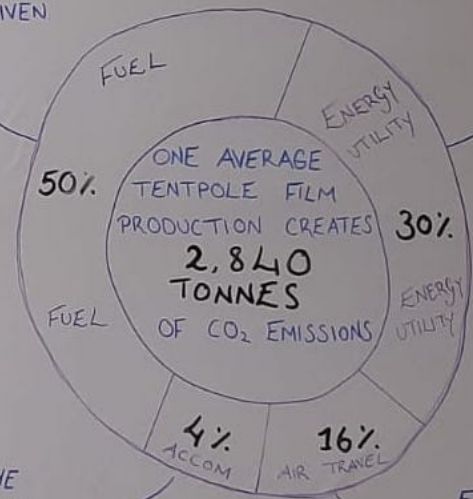 IVEN
FUEL
ENERGY
UTILITY
ONE AVERAGE
TENTPOLE FILM
PRODUCTION CREATES
2,840
TONNES
OF CO₂ EMISSIONS
50%
30%
FUEL
ENERGY
UTILITY
4%
ACCOM
16%
AIR TRAVEL